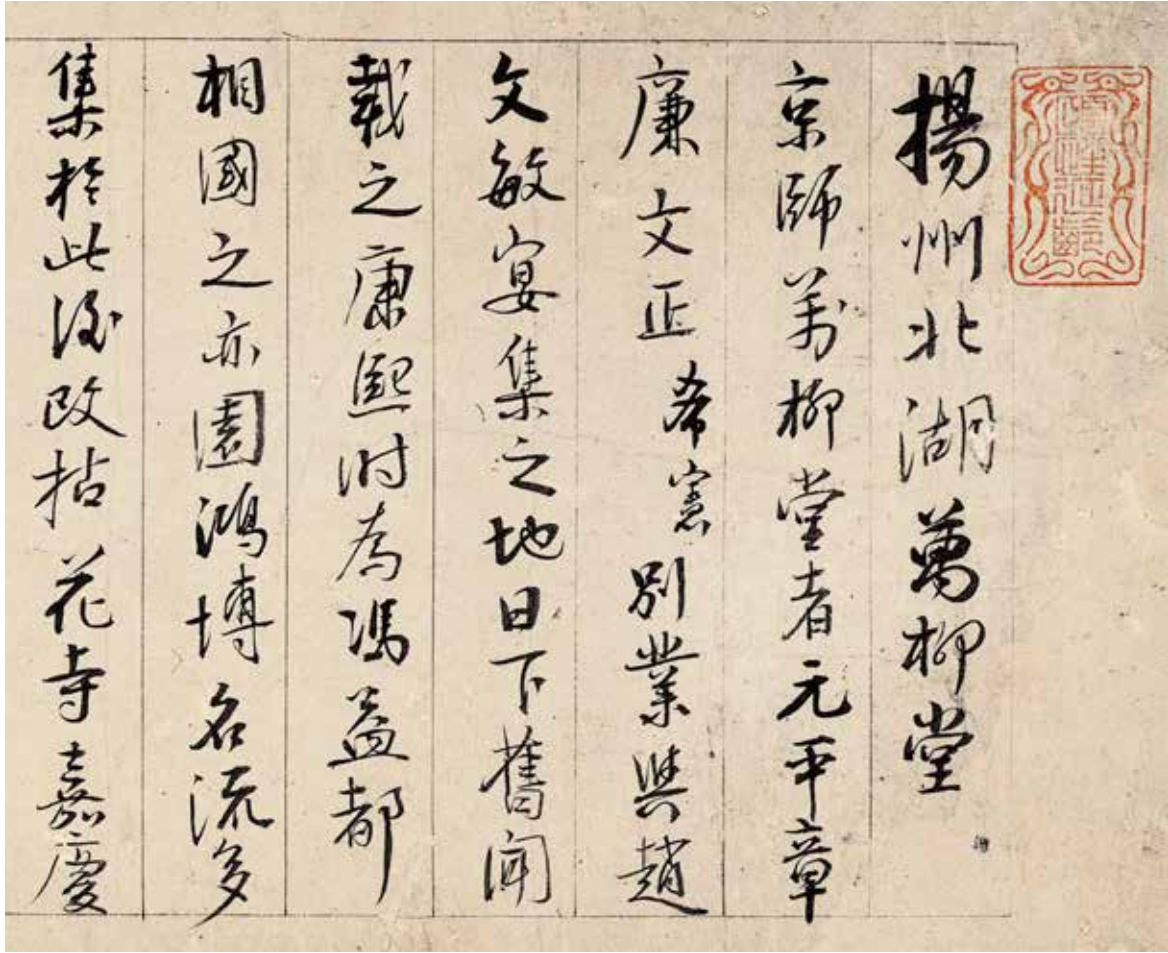 揚州北湖萬柳堂
京師萬柳堂者元平章
廉文正希憲別業與趙
文敏宴集之地日下舊聞
載之康熙时為馮益都
相國之亦園鴻博名流多
集於此後改拈花寺嘉慶